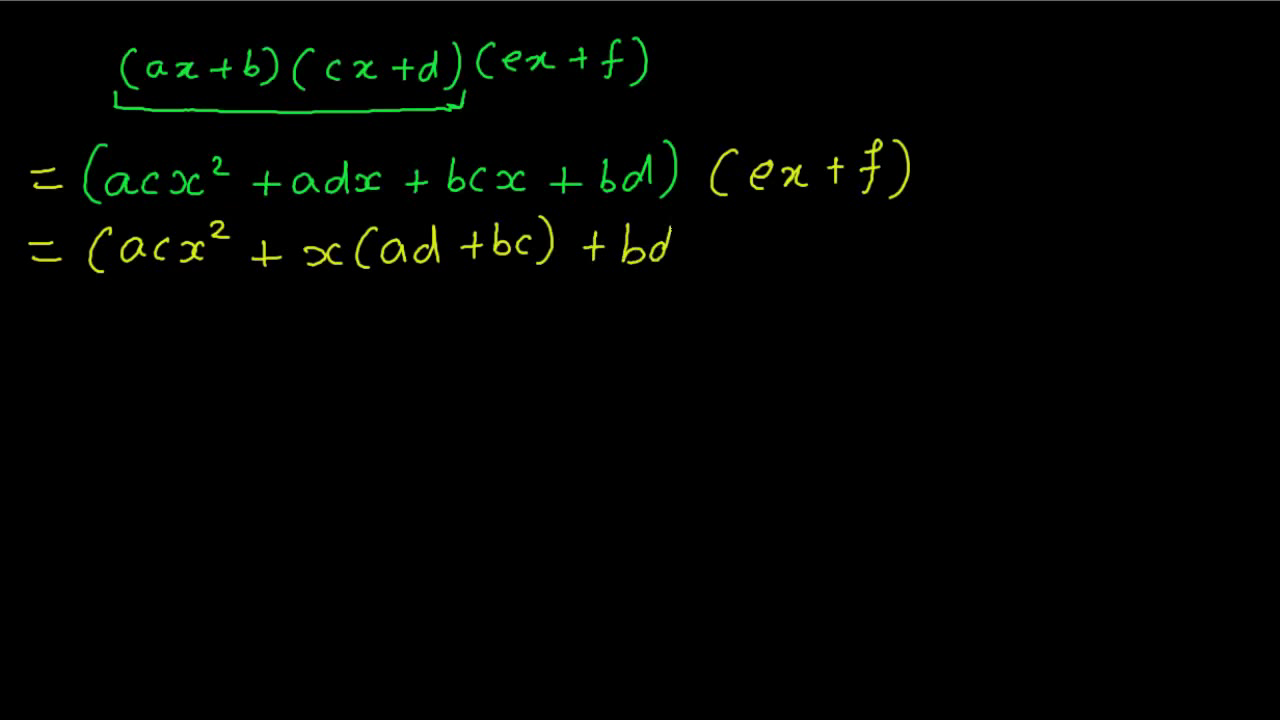 (ax+b)(cx+d)(ex+f)
= (acx² + adx + bcx + bd) (ex + f)
= (acx² + x(ad +bc) + bd